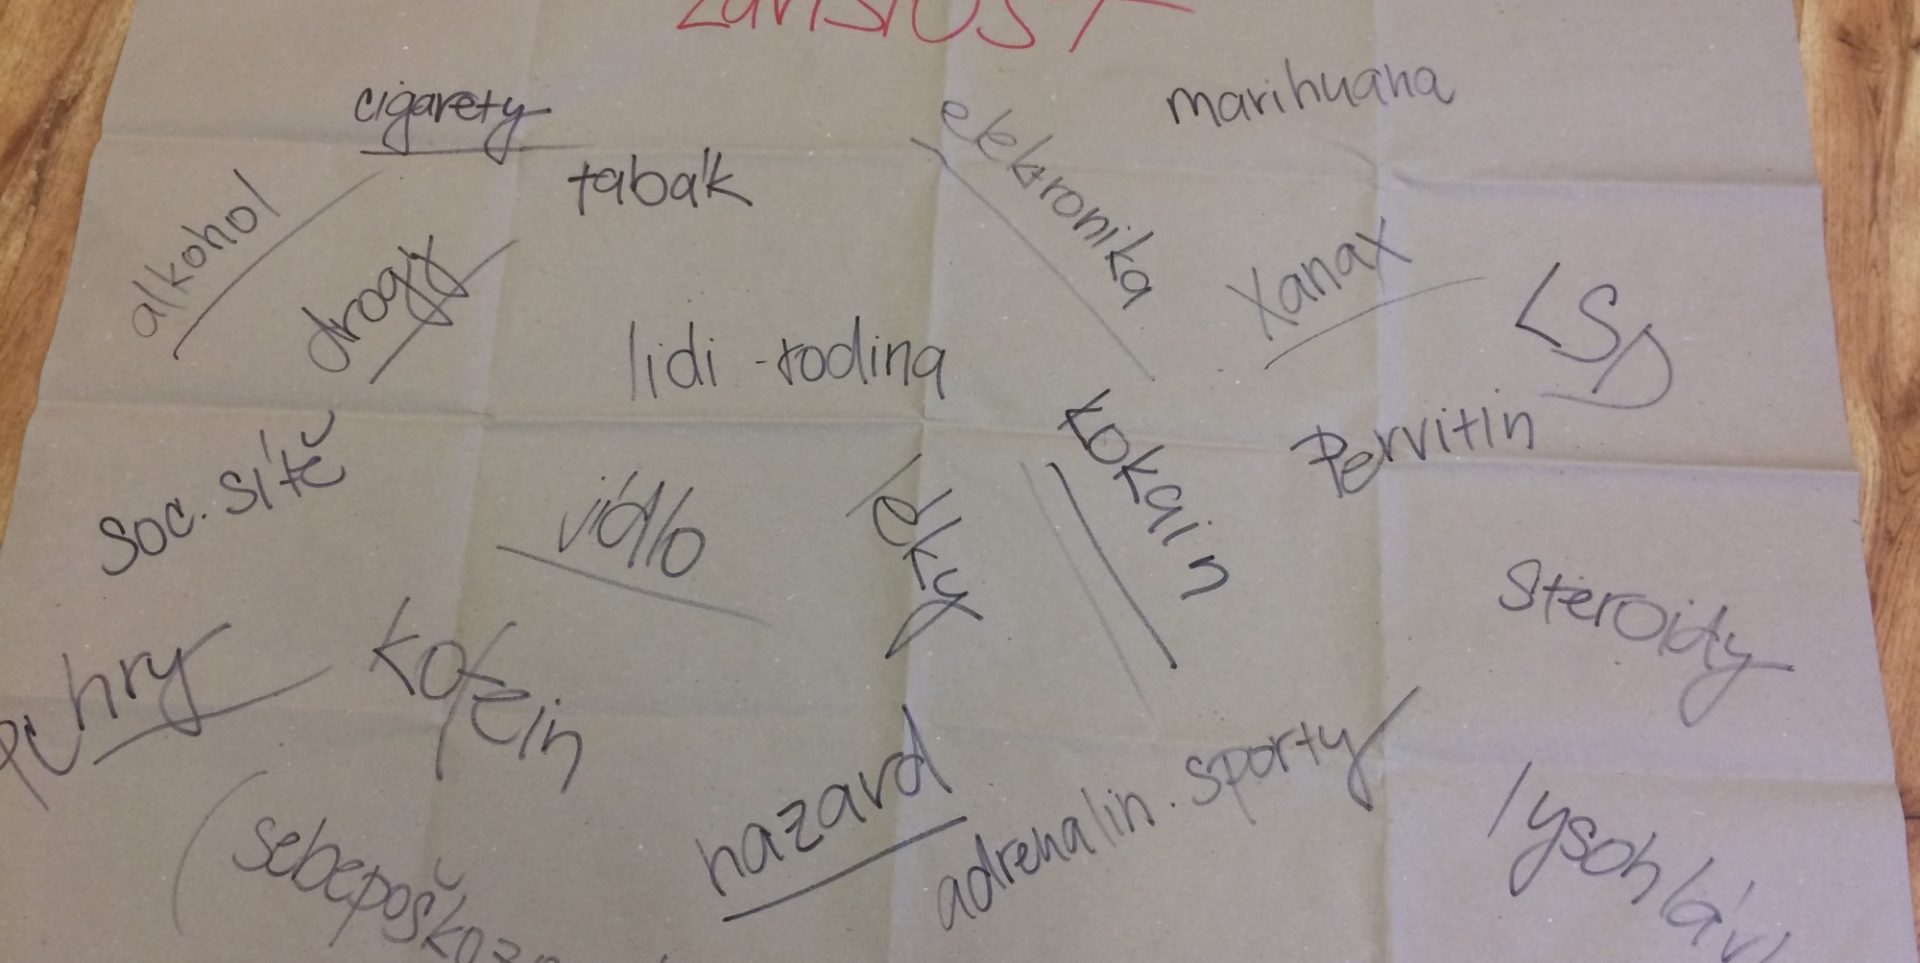 cigarety
marihuana
elektronika
tabák
alkohol
drogy
Xanax
LSD
lidi - rodina
kokain
Pervitin
soc. sítě
jídlo
léky
steroidy
PC hry
kofein
hazard
adrenalin. sporty